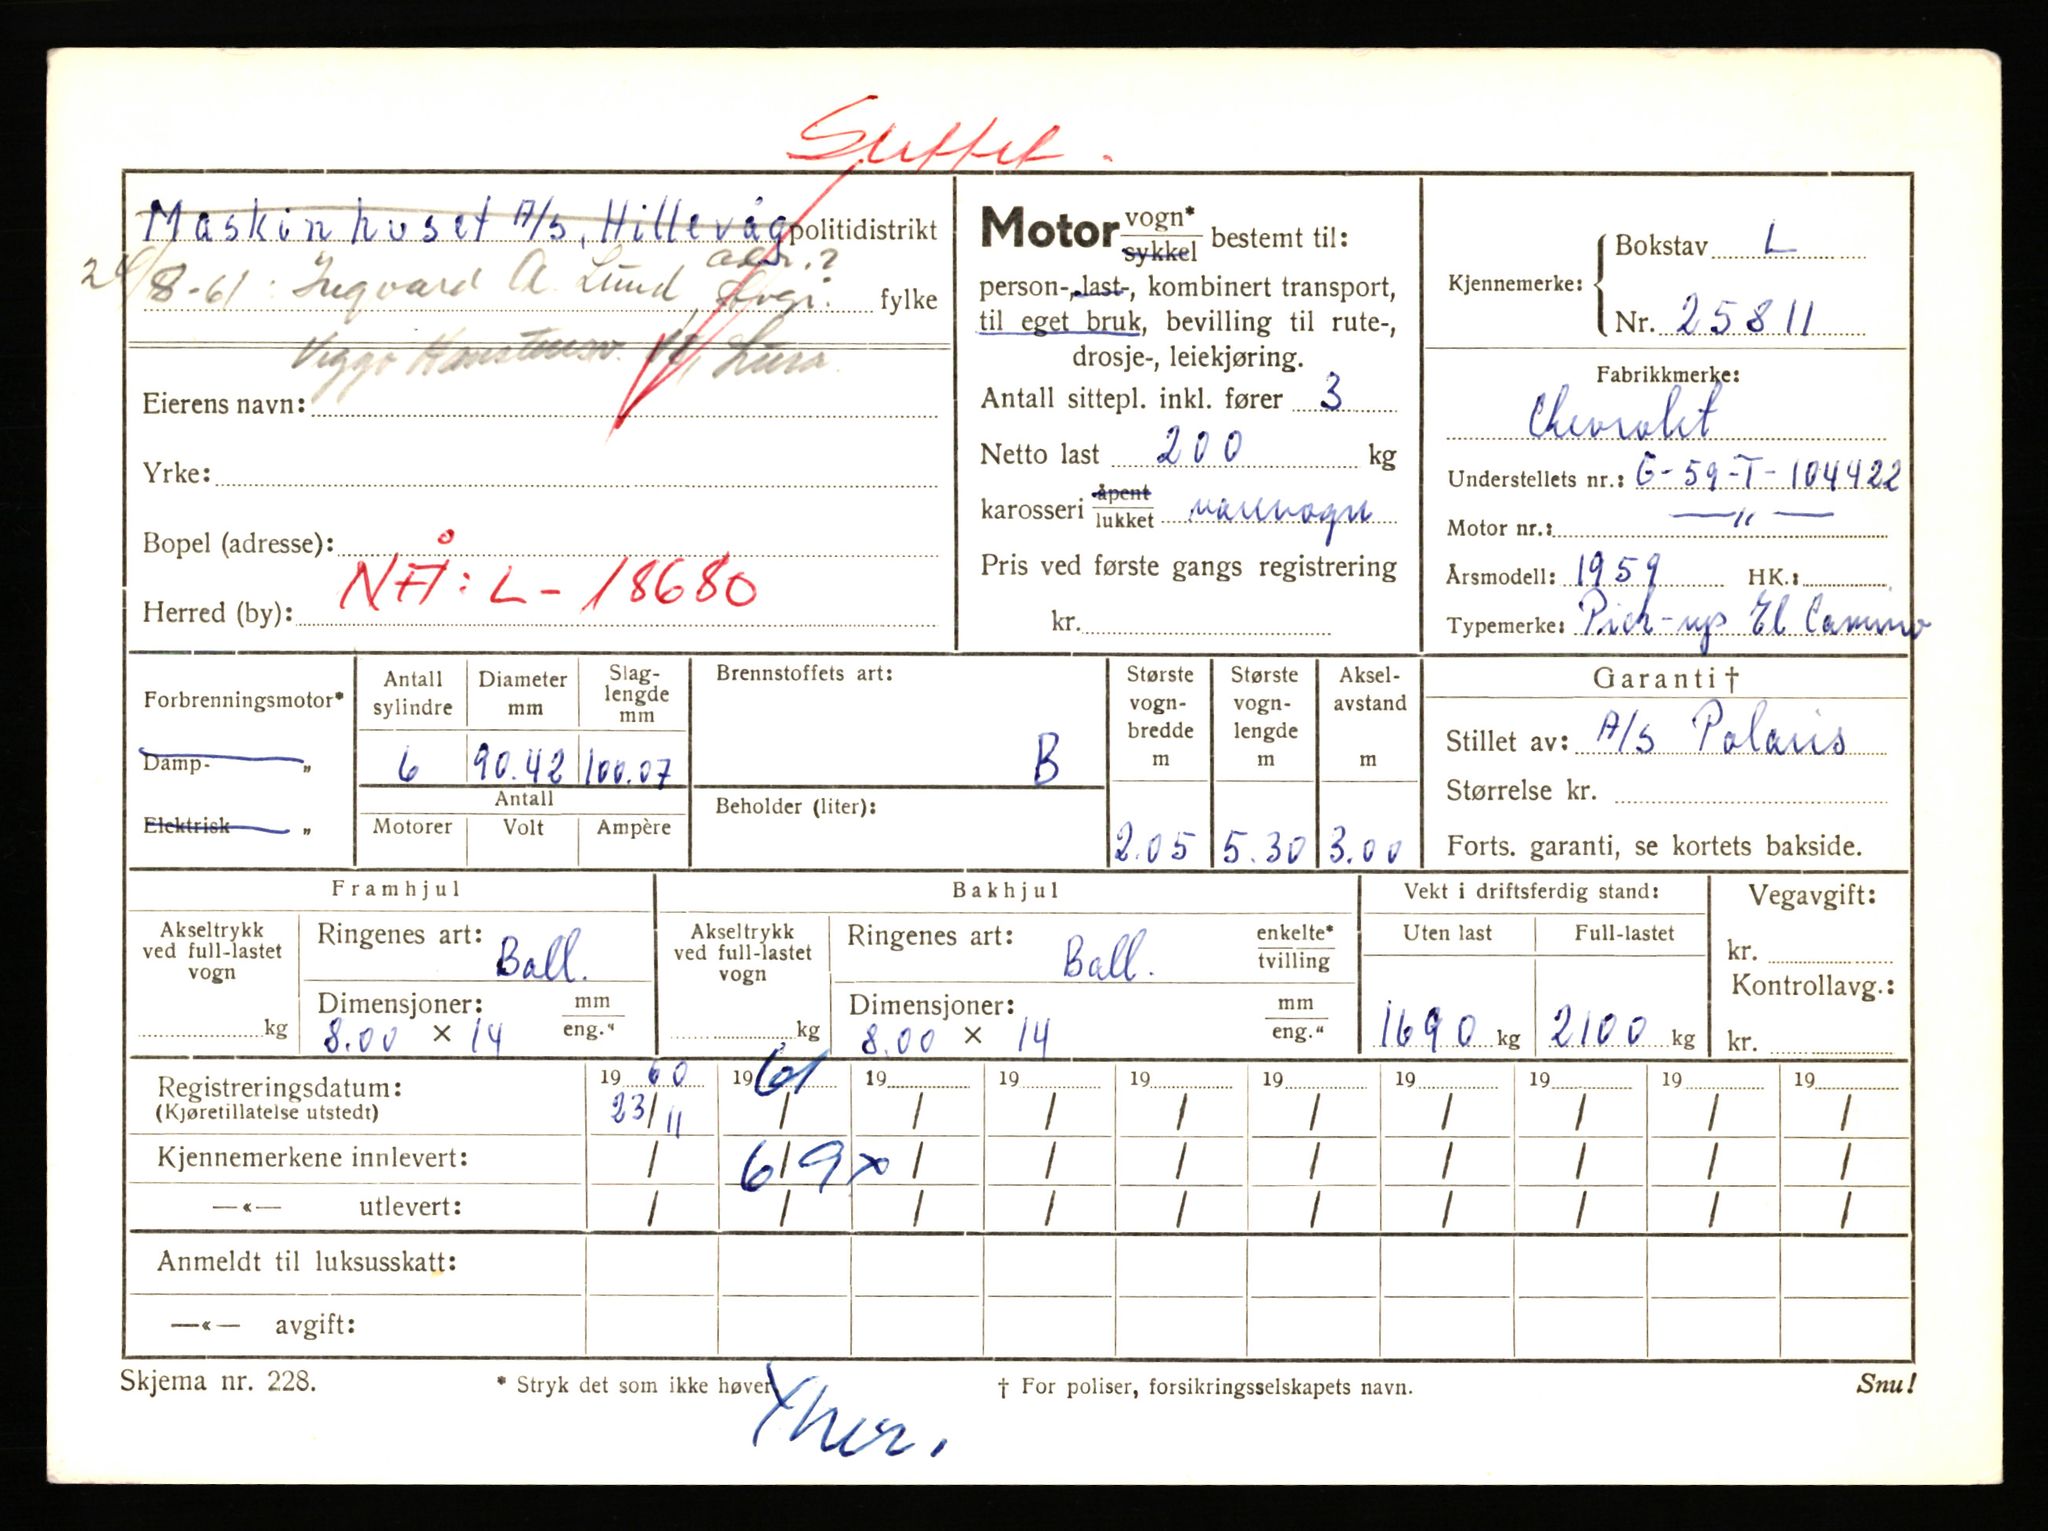 Slettet.
Maskinhuset A/S, Hillevåg politidistrikt
adr.?
24/8-61: Ingvard A. Lund, fylke
Viggo Lura.
Eierens navn:
Yrke:
Bopel (adresse):
NÅ: L - 18680
Herred (by):
Motor vogn* sykkel bestemt til:
person-, last-, kombinert transport,
til eget bruk, bevilling til rute-,
drosje-, leiekjøring.
Antall sittepl. inkl. fører 3
Netto last 200 kg
karosseri åpent lukket varevogn
Pris ved første gangs registrering
kr.
Kjennemerke: Bokstav L
Nr. 25811
Fabrikkmerke:
Chevrolet
Understellets nr.: G-59-T-104422
Motor nr.: — „ —
Årsmodell: 1959 HK.:
Typemerke: Pick-up El Camino
Forbrenningsmotor*
Damp- „
Elektrisk „
Antall sylindre Diameter mm Slag-lengde mm
6 90.42 100.07
Antall
Motorer Volt Ampère
Brennstoffets art:
B
Beholder (liter):
Største vogn-bredde m Største vogn-lengde m Aksel-avstand m
2.05 5.30 3.00
Garanti †
Stillet av: A/S Polaris
Størrelse kr.
Forts. garanti, se kortets bakside.
Framhjul
Akseltrykk ved full-lastet vogn
kg
Ringenes art: Ball.
Dimensjoner: mm eng."
8.00 × 14
Bakhjul
Akseltrykk ved full-lastet vogn
kg
Ringenes art: Ball. enkelte* tvilling
Dimensjoner: mm eng."
8.00 × 14
Vekt i driftsferdig stand:
Uten last Full-lastet
1690 kg 2100 kg
Vegavgift:
kr.
Kontrollavg.:
kr.
Registreringsdatum: 19 60 19 61 19 19 19 19 19 19 19 19
(Kjøretillatelse utstedt) 23/11 / / / / / / / / /
Kjennemerkene innlevert: / 6/9 x / / / / / / / /
—«— utlevert: / / / / / / / / / /
Anmeldt til luksusskatt:
—«— avgift:
Skjema nr. 228. * Stryk det som ikke høver. † For poliser, forsikringsselskapets navn. Snu!